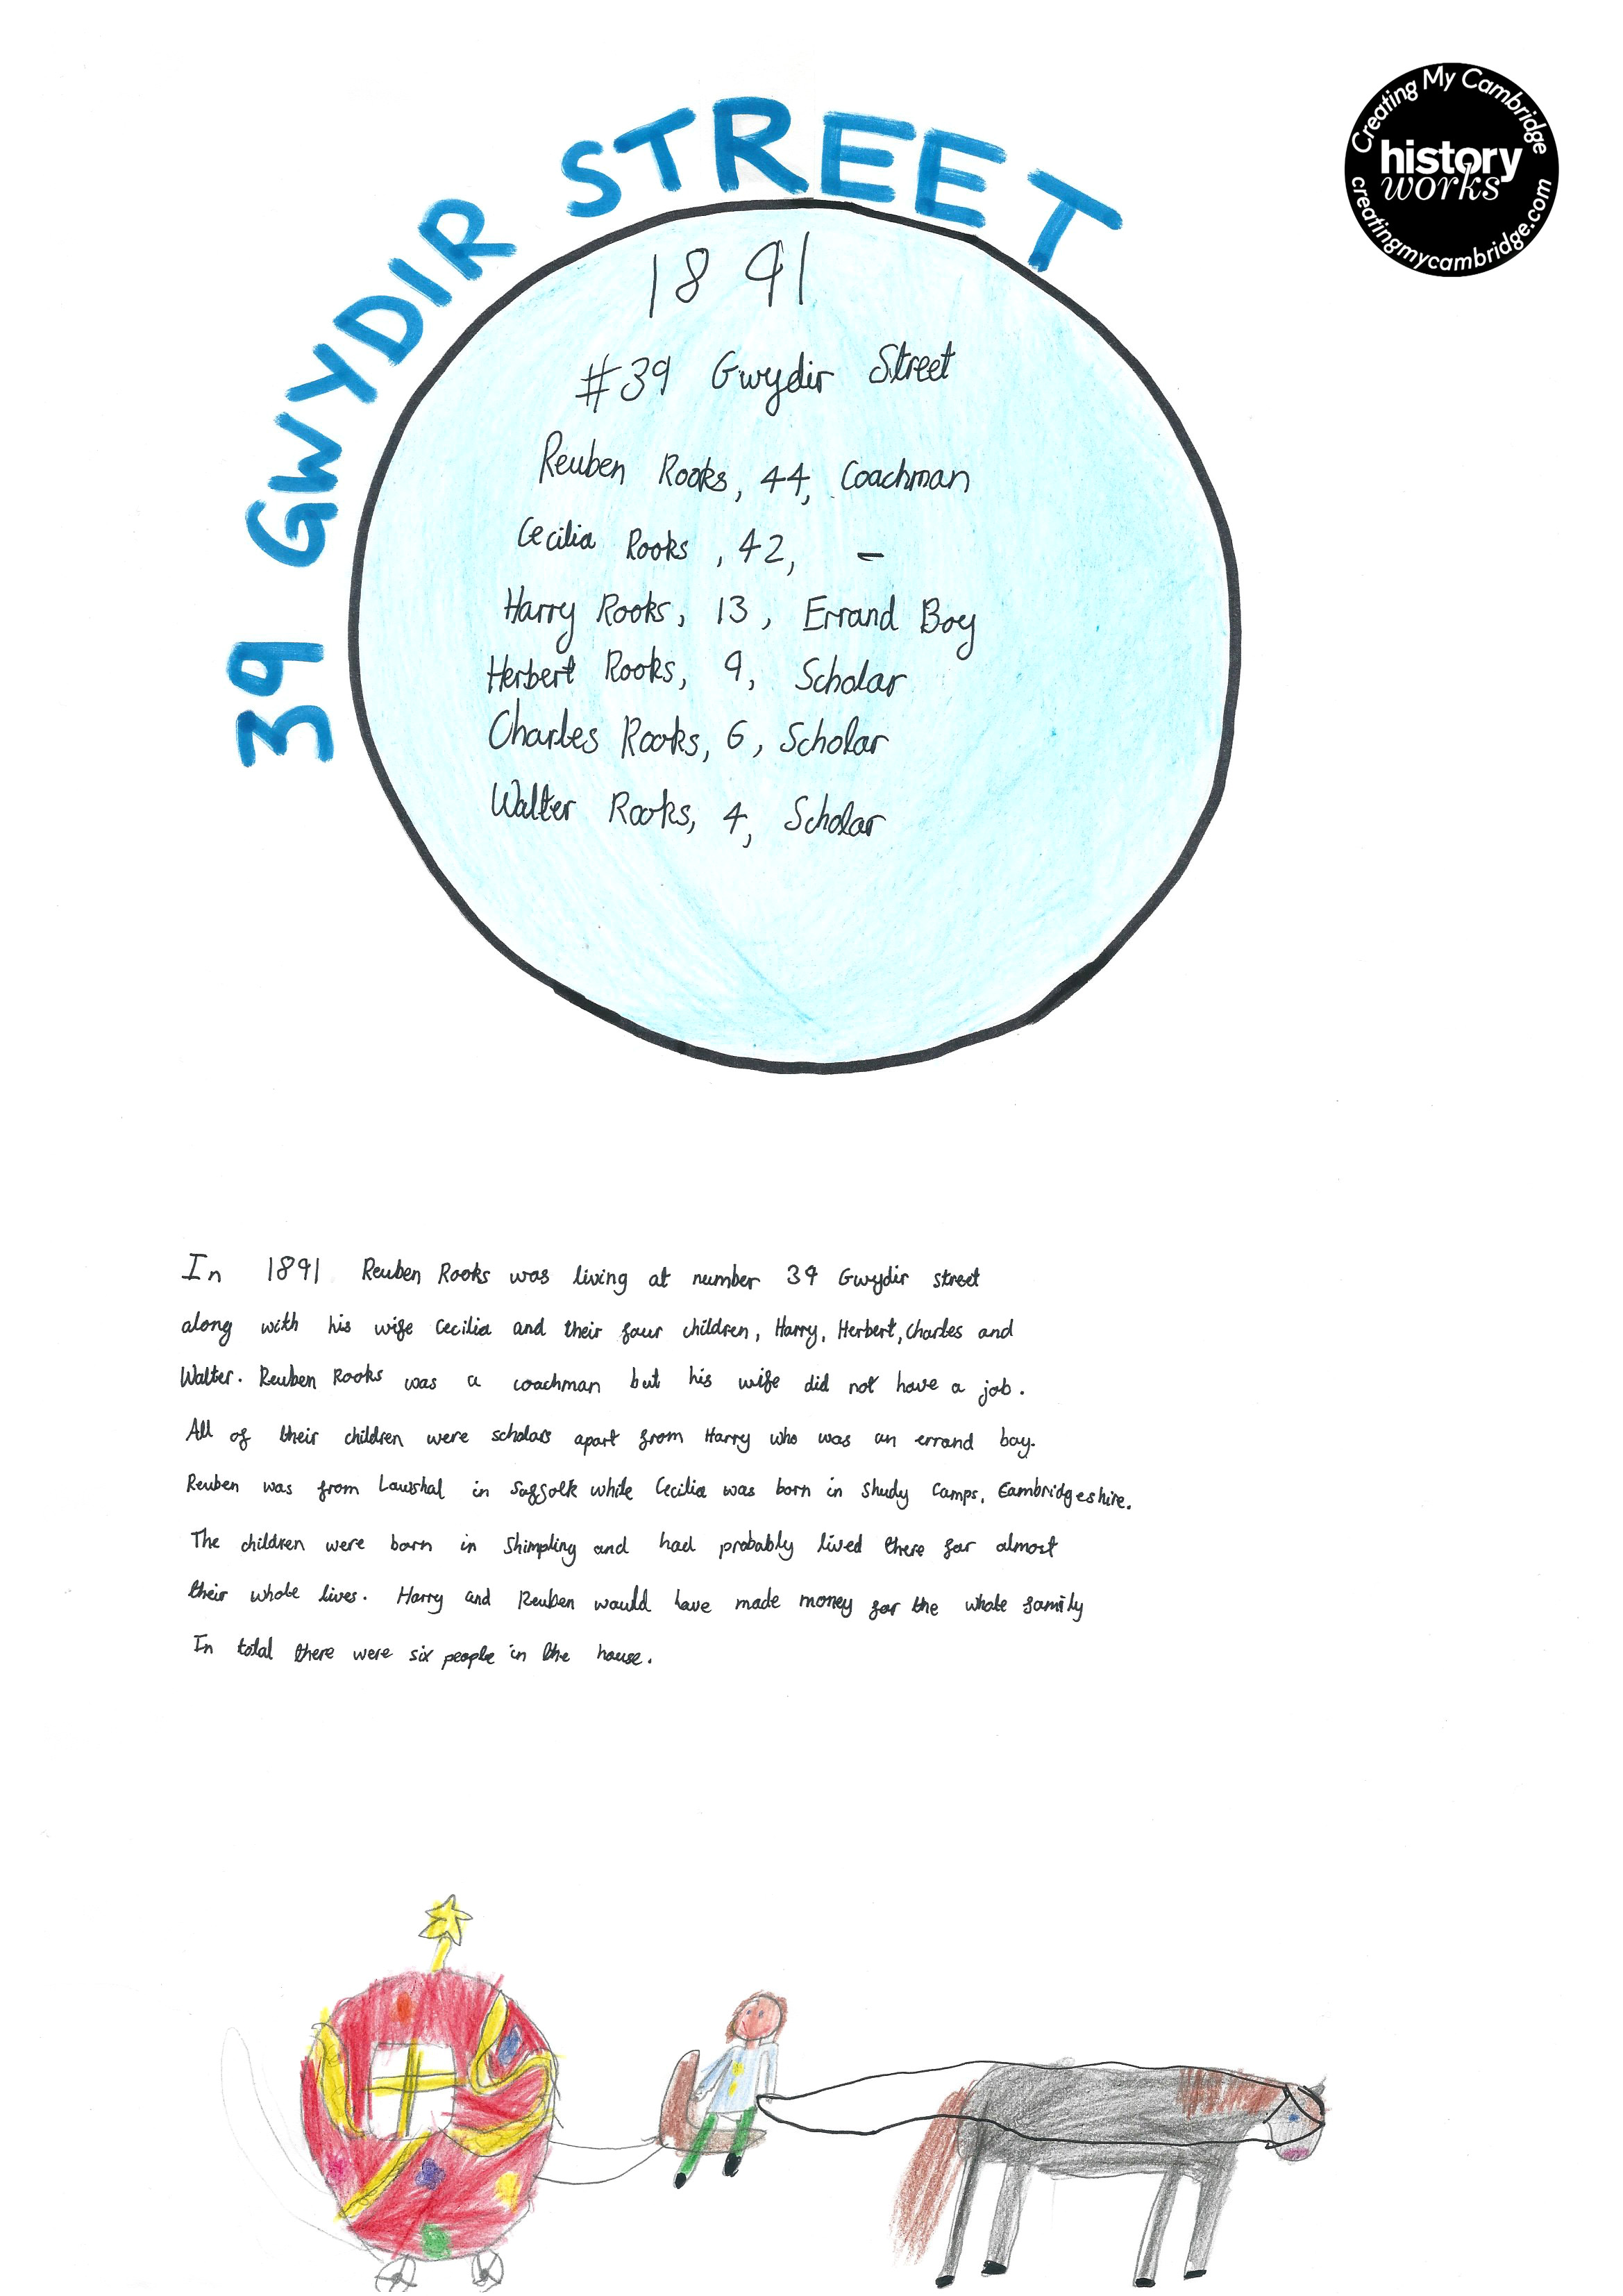 Creating My Cambridge
history
works
creatingmycambridge.com
39 GWYDIR STREET
1891
#39 Gwydir Street
Reuben Rooks, 44, Coachman
Cecilia Rooks, 42, -
Harry Rooks, 13, Errand Boy
Herbert Rooks, 9, Scholar
Charles Rooks, 6, Scholar
Walter Rooks, 4, Scholar
In 1891 Reuben Rooks was living at number 39 Gwydir street
along with his wife Cecilia and their four children, Harry, Herbert, Charles and
Walter. Reuben Rooks was a coachman but his wife did not have a job.
All of their children were scholars apart from Harry who was an errand boy.
Reuben was from Lawshal in Suffolk while Cecilia was born in Shudy Camps, Cambridgeshire.
The children were born in Shimpling and had probably lived there for almost
their whole lives. Harry and Reuben would have made money for the whole family
In total there were six people in the house.